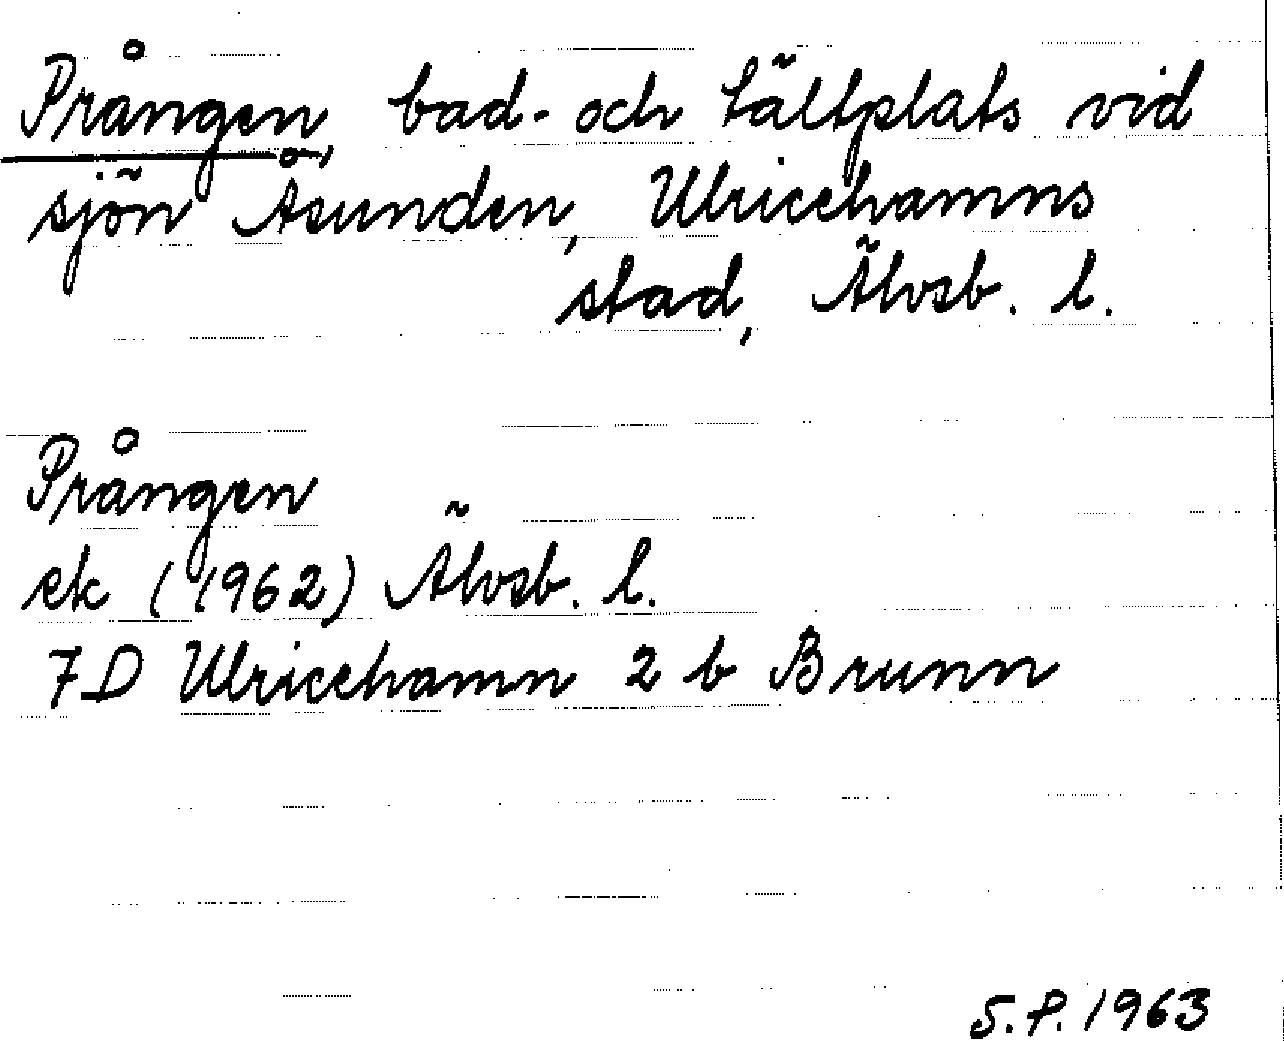 Prången, bad- och tältplats vid
sjön Åsunden, Ulricehamns
stad, Älvsb. l.
Prången
ek (1962) Älvsb. l.
7D Ulricehamn 2 b Brunn
S.P. 1963